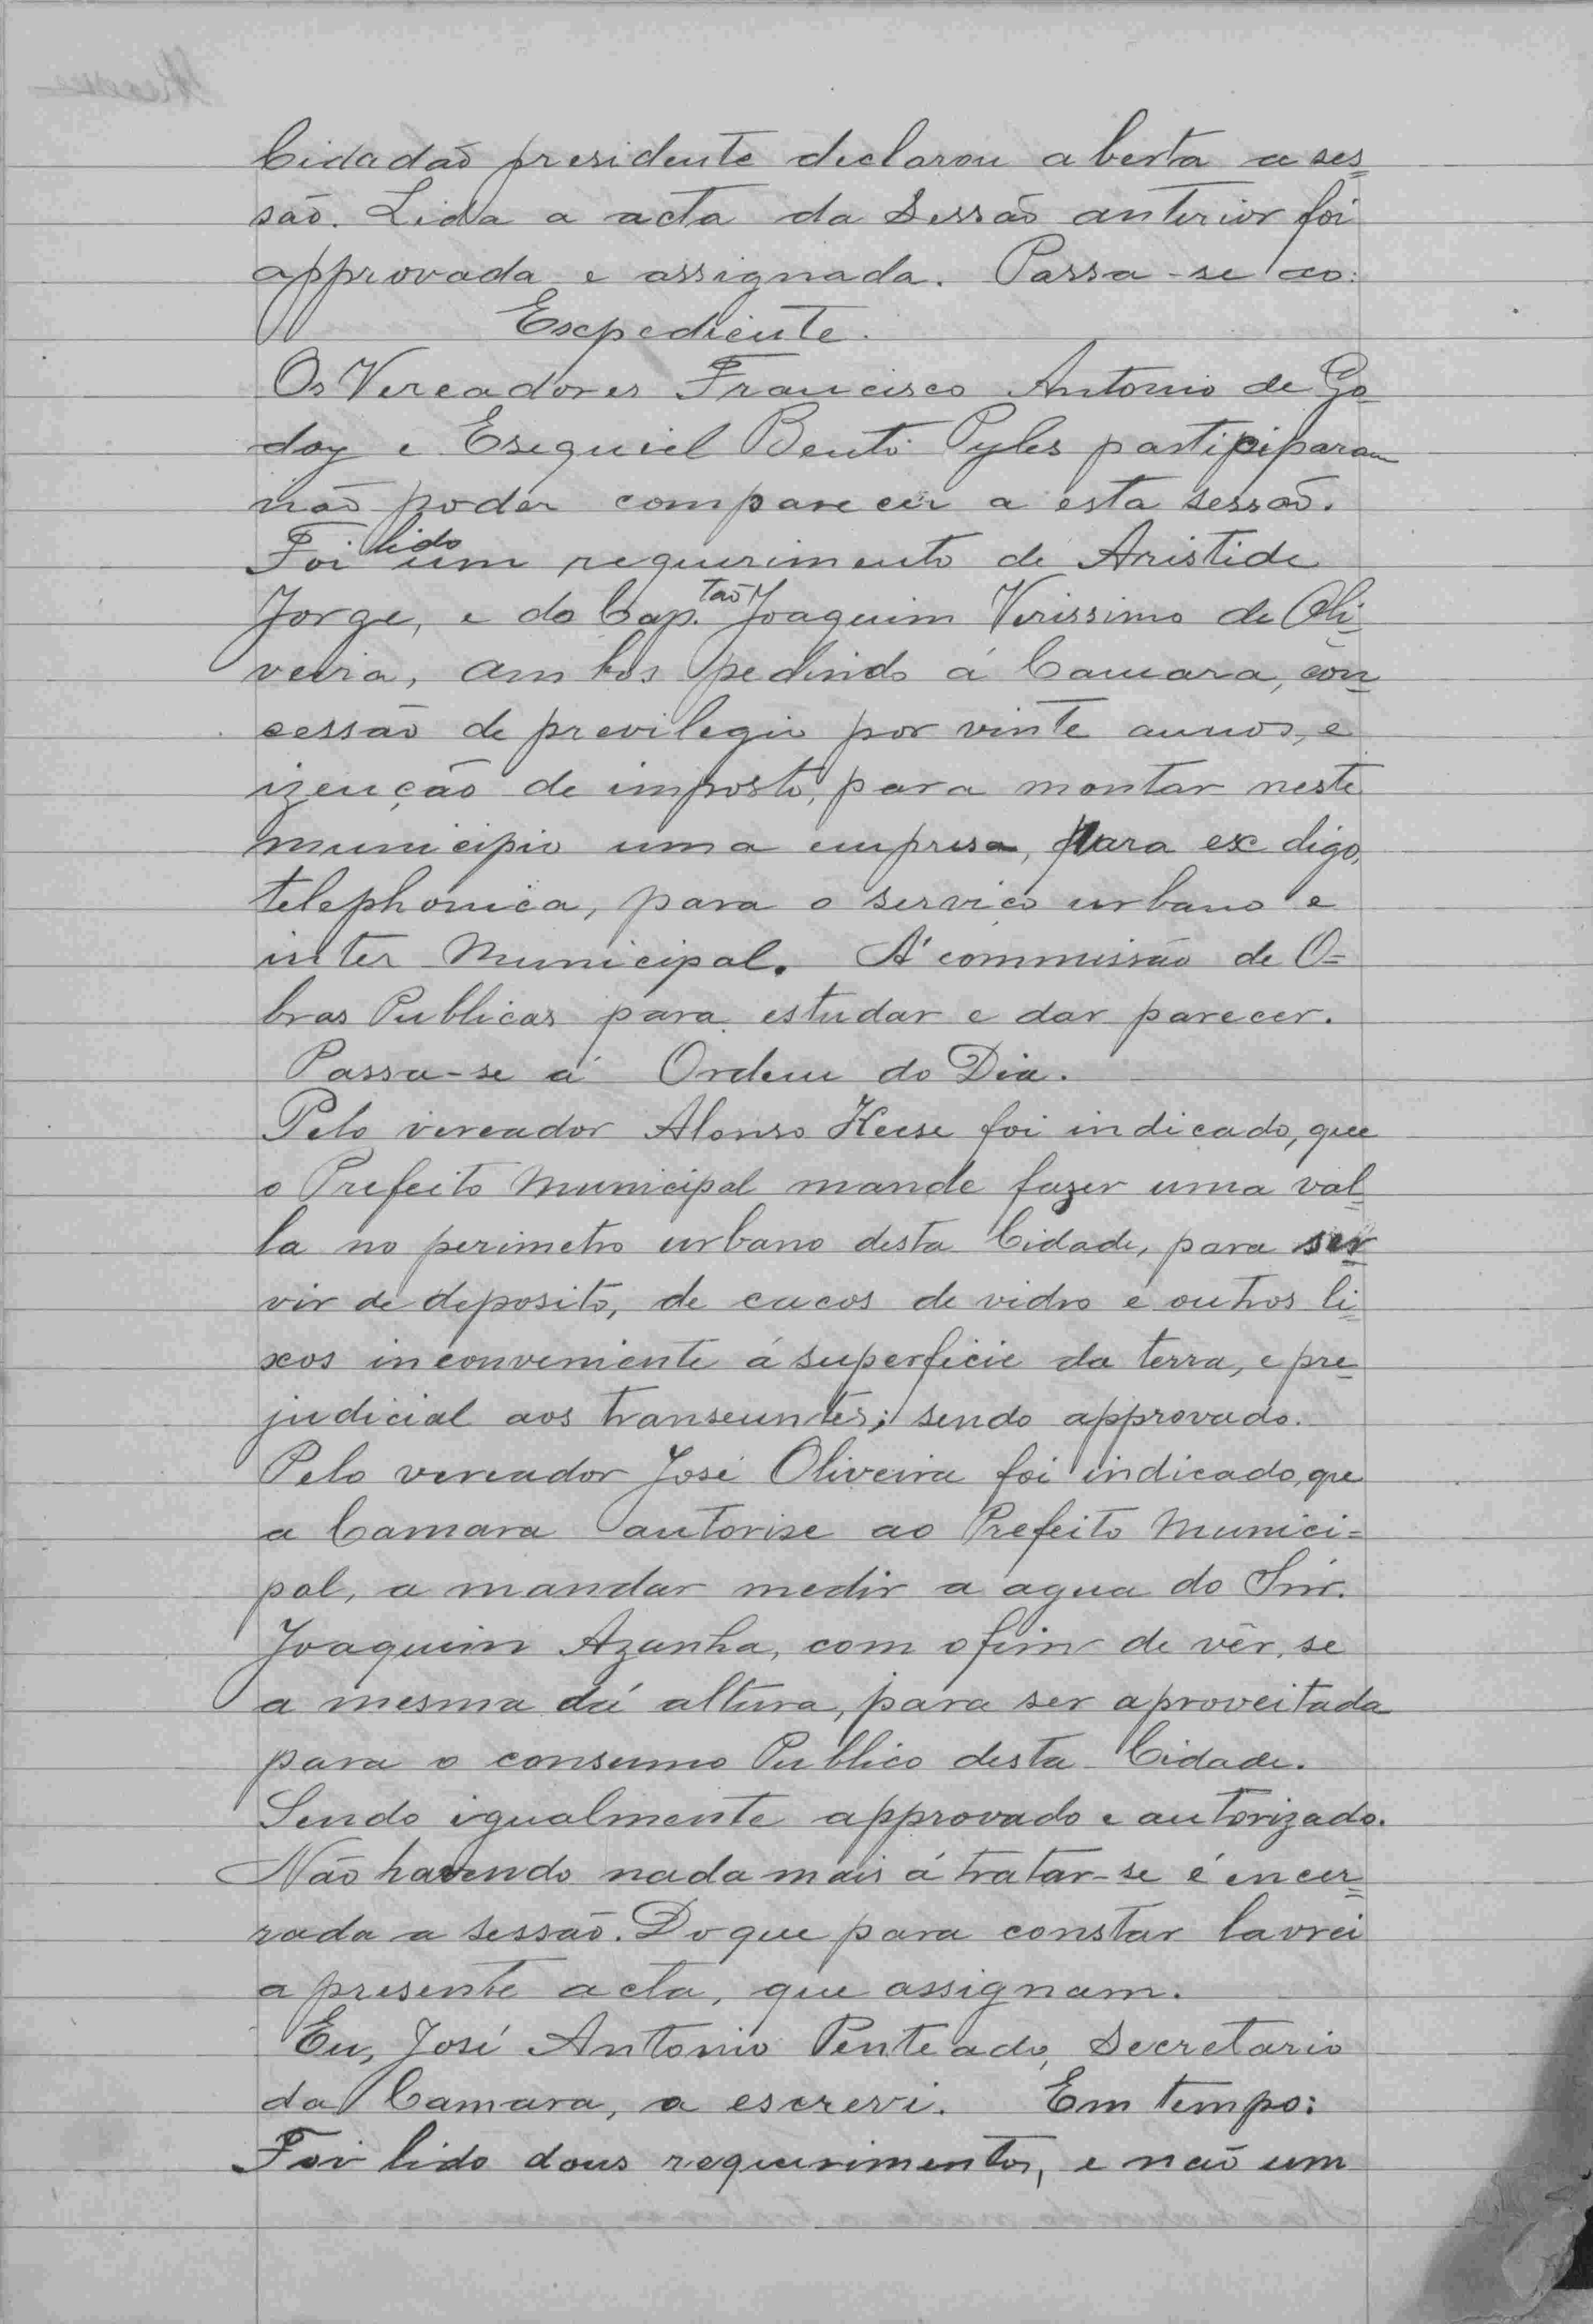 Cidadão presidente declarou aberta a ses=
são. Lida a acta da Sessão anterior foi
approvada e assignada. Passa-se ao:
Expediente.
Os Vereadores Francisco Antonio de Go-
doy e Esequiel Bento Pyles partipiparam
não poder comparecer a esta sessão.
Foi lido um requerimento de Aristide
Jorge, e do Cap.tão Joaquim Verissimo de Oli-
veira, ambos pedindo á Camara, con-
cessão de previlegio por vinte annos, e
izenção de imposto, para montar neste
municipio uma empresa, para ex digo,
telephonica, para o serviço urbano e
inter Municipal. A' commissão de O=
bras Publicas para estudar e dar parecer.
Passa-se á Ordem do Dia.
Pelo vereador Alonso Keese foi indicado, que
o Prefeito Municipal mande fazer uma val=
la no perimetro urbano desta Cidade, para ser=
vir de deposito, de cacos de vidro e outros li=
xos inconveniente á superficie da terra, e pre-
judicial aos transeuntes; sendo approvado.
Pelo vereador José Oliveira foi indicado, que
a Camara autorise ao Prefeito Munici=
pal, a mandar medir a agua do Snr.
Joaquim Azanha, com o fim de vêr, se
a mesma dá altura, para ser aproveitada
para o consumo Publico desta Cidade.
Sendo igualmente approvado e autorizado.
Não havendo nada mais á tratar-se é encer=
rada a sessão. Do que para constar lavrei
a presente acta, que assignam.
Eu, José Antonio Penteado, Secretario
da Camara, a escrevi. Em tempo:
Foi lido dous requerimentos, e não um